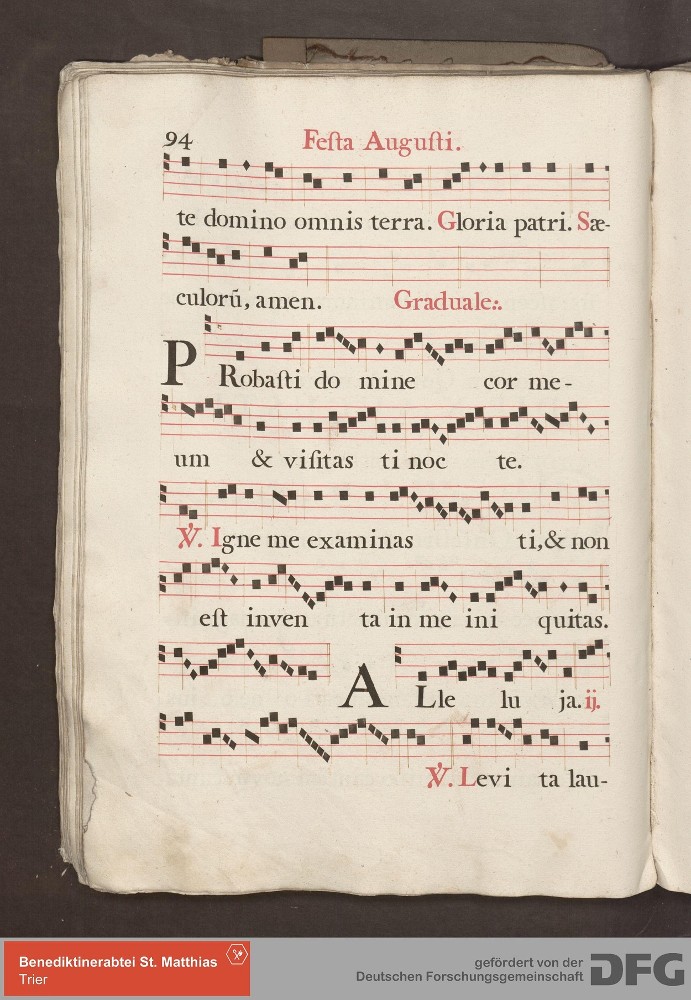 94 Feſta Auguſti.
te domino omnis terra. Gloria patri. Sæ-
culorũ, amen. Graduale:.
PRobaſti do mine cor me-
um & viſitas ti noc te.
℣. Igne me examinas ti, & non
eſt inven ta in me ini quitas.
ALle lu ja. ij.
℣. Levi ta lau-
Benediktinerabtei St. Matthias
Trier
gefördert von der
Deutschen Forschungsgemeinschaft
DFG